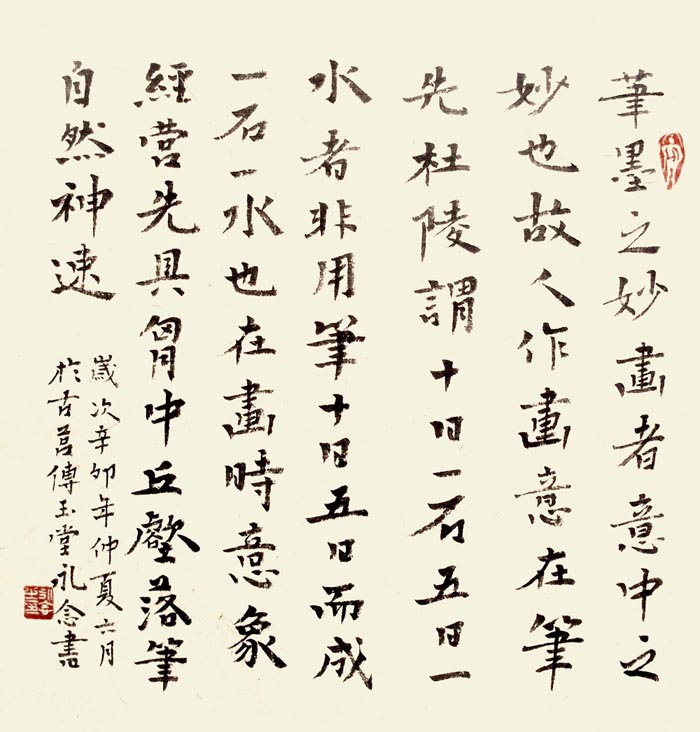 筆墨之妙畫者意中之
妙也故人作畫意在筆
先杜陵謂十日一石五日一
水者非用筆十日五日而成
一石一水也在畫時意象
經營先具胷中丘壑落筆
自然神速
歲次辛卯年仲夏六月
於古莒傳玉堂礼念書